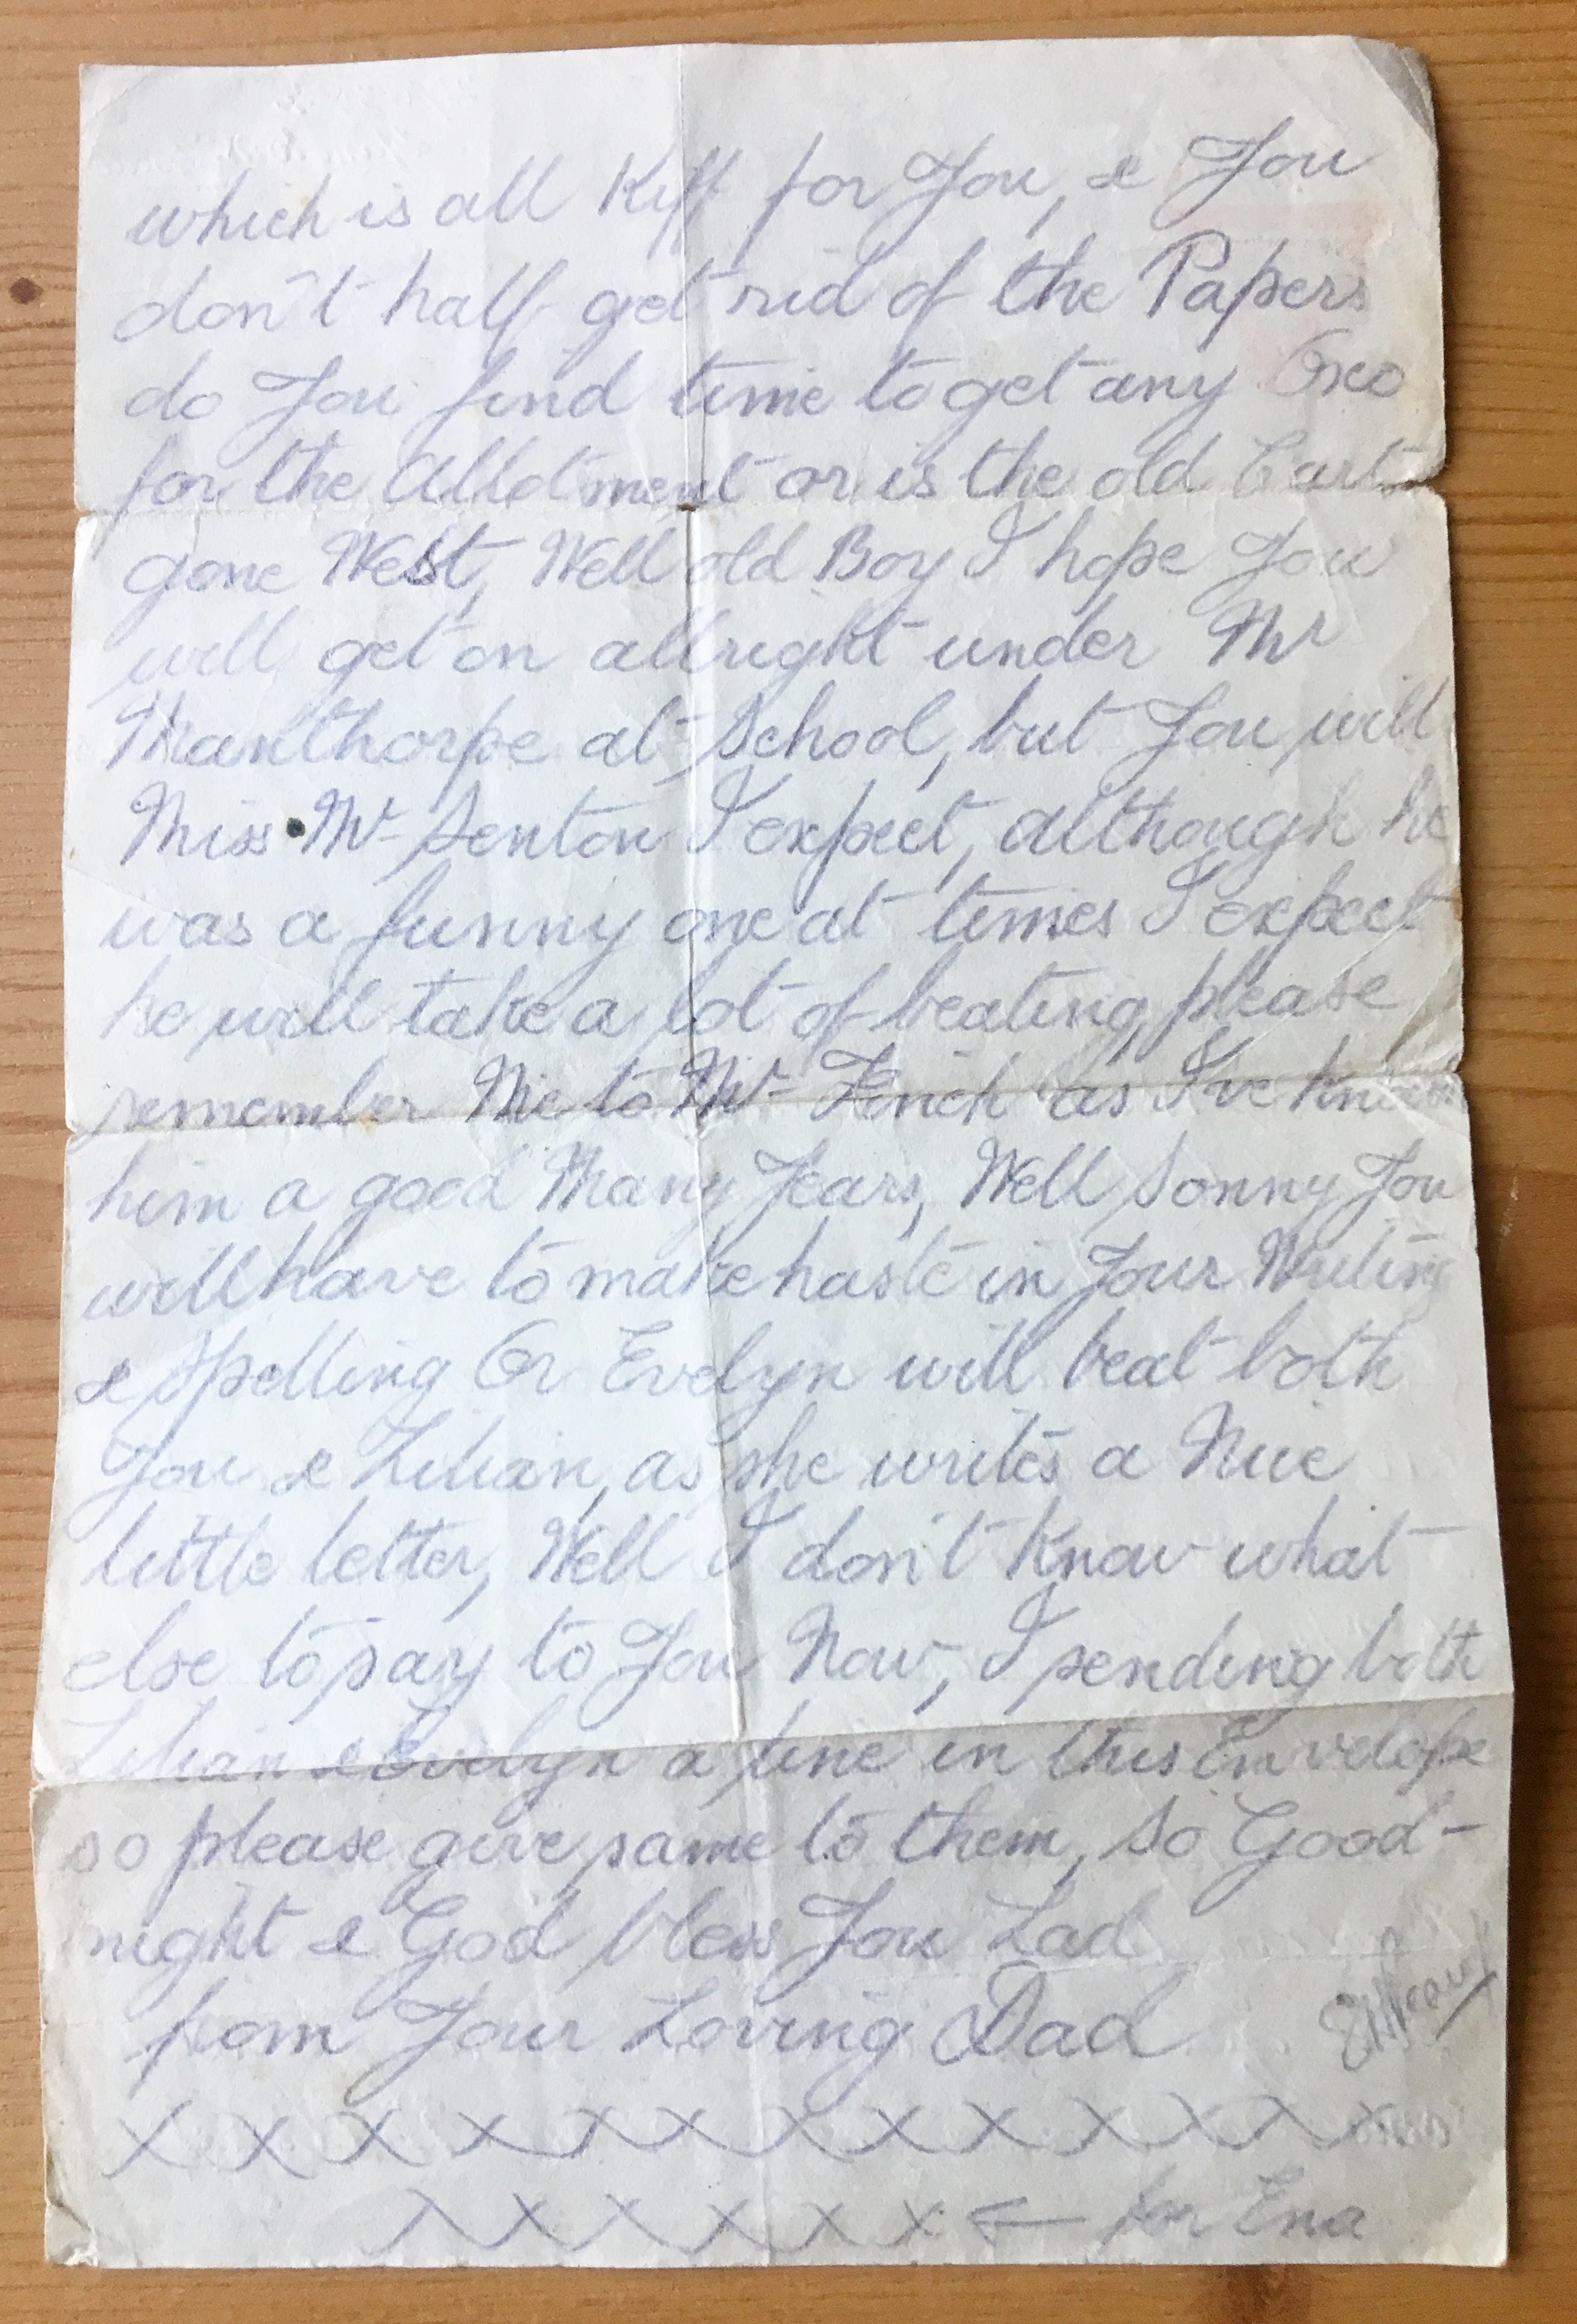 which is all Kiff for You, & You
don't half get rid of the Papers
do You find time to get any Oxo
for the Allotment or is the old Cart
gone West, Well old Boy I hope You
will get on allright under Mr
Manthorpe at School, but You will
Miss Mr Senton I expect, although he
was a funny one at times I expect
he will take a lot of beating, please
remember Me to Mr Finch as I've known
him a good Many Years, Well Sonny You
will have to make haste in Your Writing
& Spelling Or Evelyn will beat both
You & Lilian, as she writes a Nice
little letter, Well I don't Know what
else to say to You Now, I sending both
Lilian & Evelyn a line in this Envelope
so please give same to them, So Good-
night & God bless You Lad
from Your Loving Dad
X X X X X X X X X X X X X
X X X X X X ← for Ena